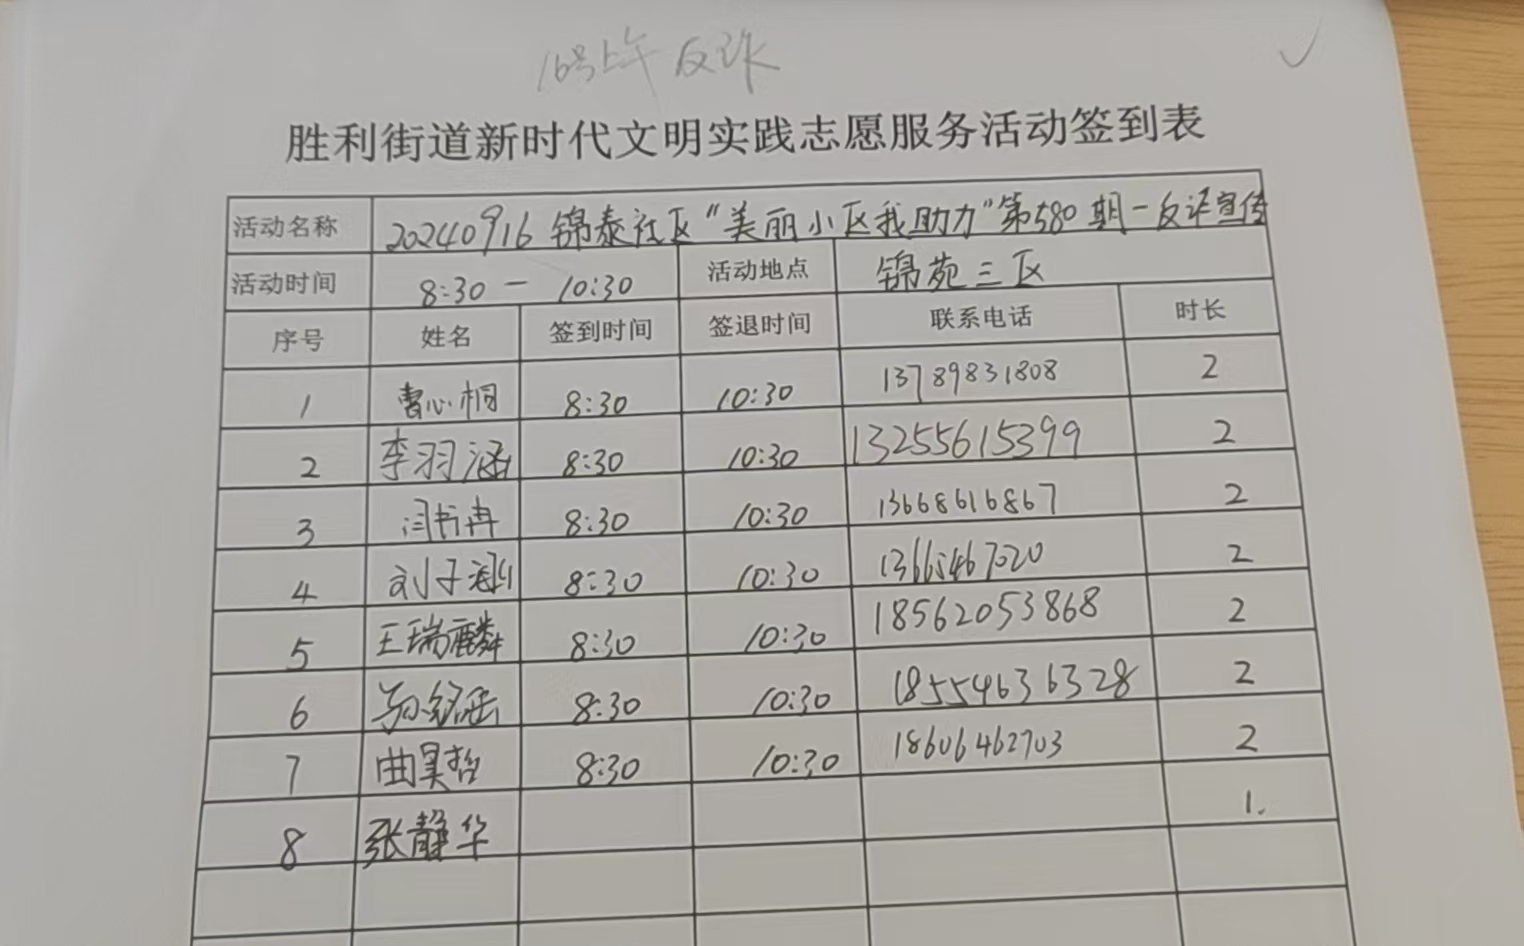 16号上午 反诈
胜利街道新时代文明实践志愿服务活动签到表
活动名称 20240916 锦泰社区“美丽小区我助力”第580期-反诈宣传
活动时间 8:30 - 10:30 活动地点 锦苑三区
序号 姓名 签到时间 签退时间 联系电话 时长
1 曹心桐 8:30 10:30 13789831808 2
2 李羽涵 8:30 10:30 13255615399 2
3 闫书冉 8:30 10:30 13668616867 2
4 刘子 8:30 10:30 13665467020 2
5 王瑞麟 8:30 10:30 18562053868 2
6 孙铭岳 8:30 10:30 18554636328 2
7 曲昊哲 8:30 10:30 18606462703 2
8 张静华 1.